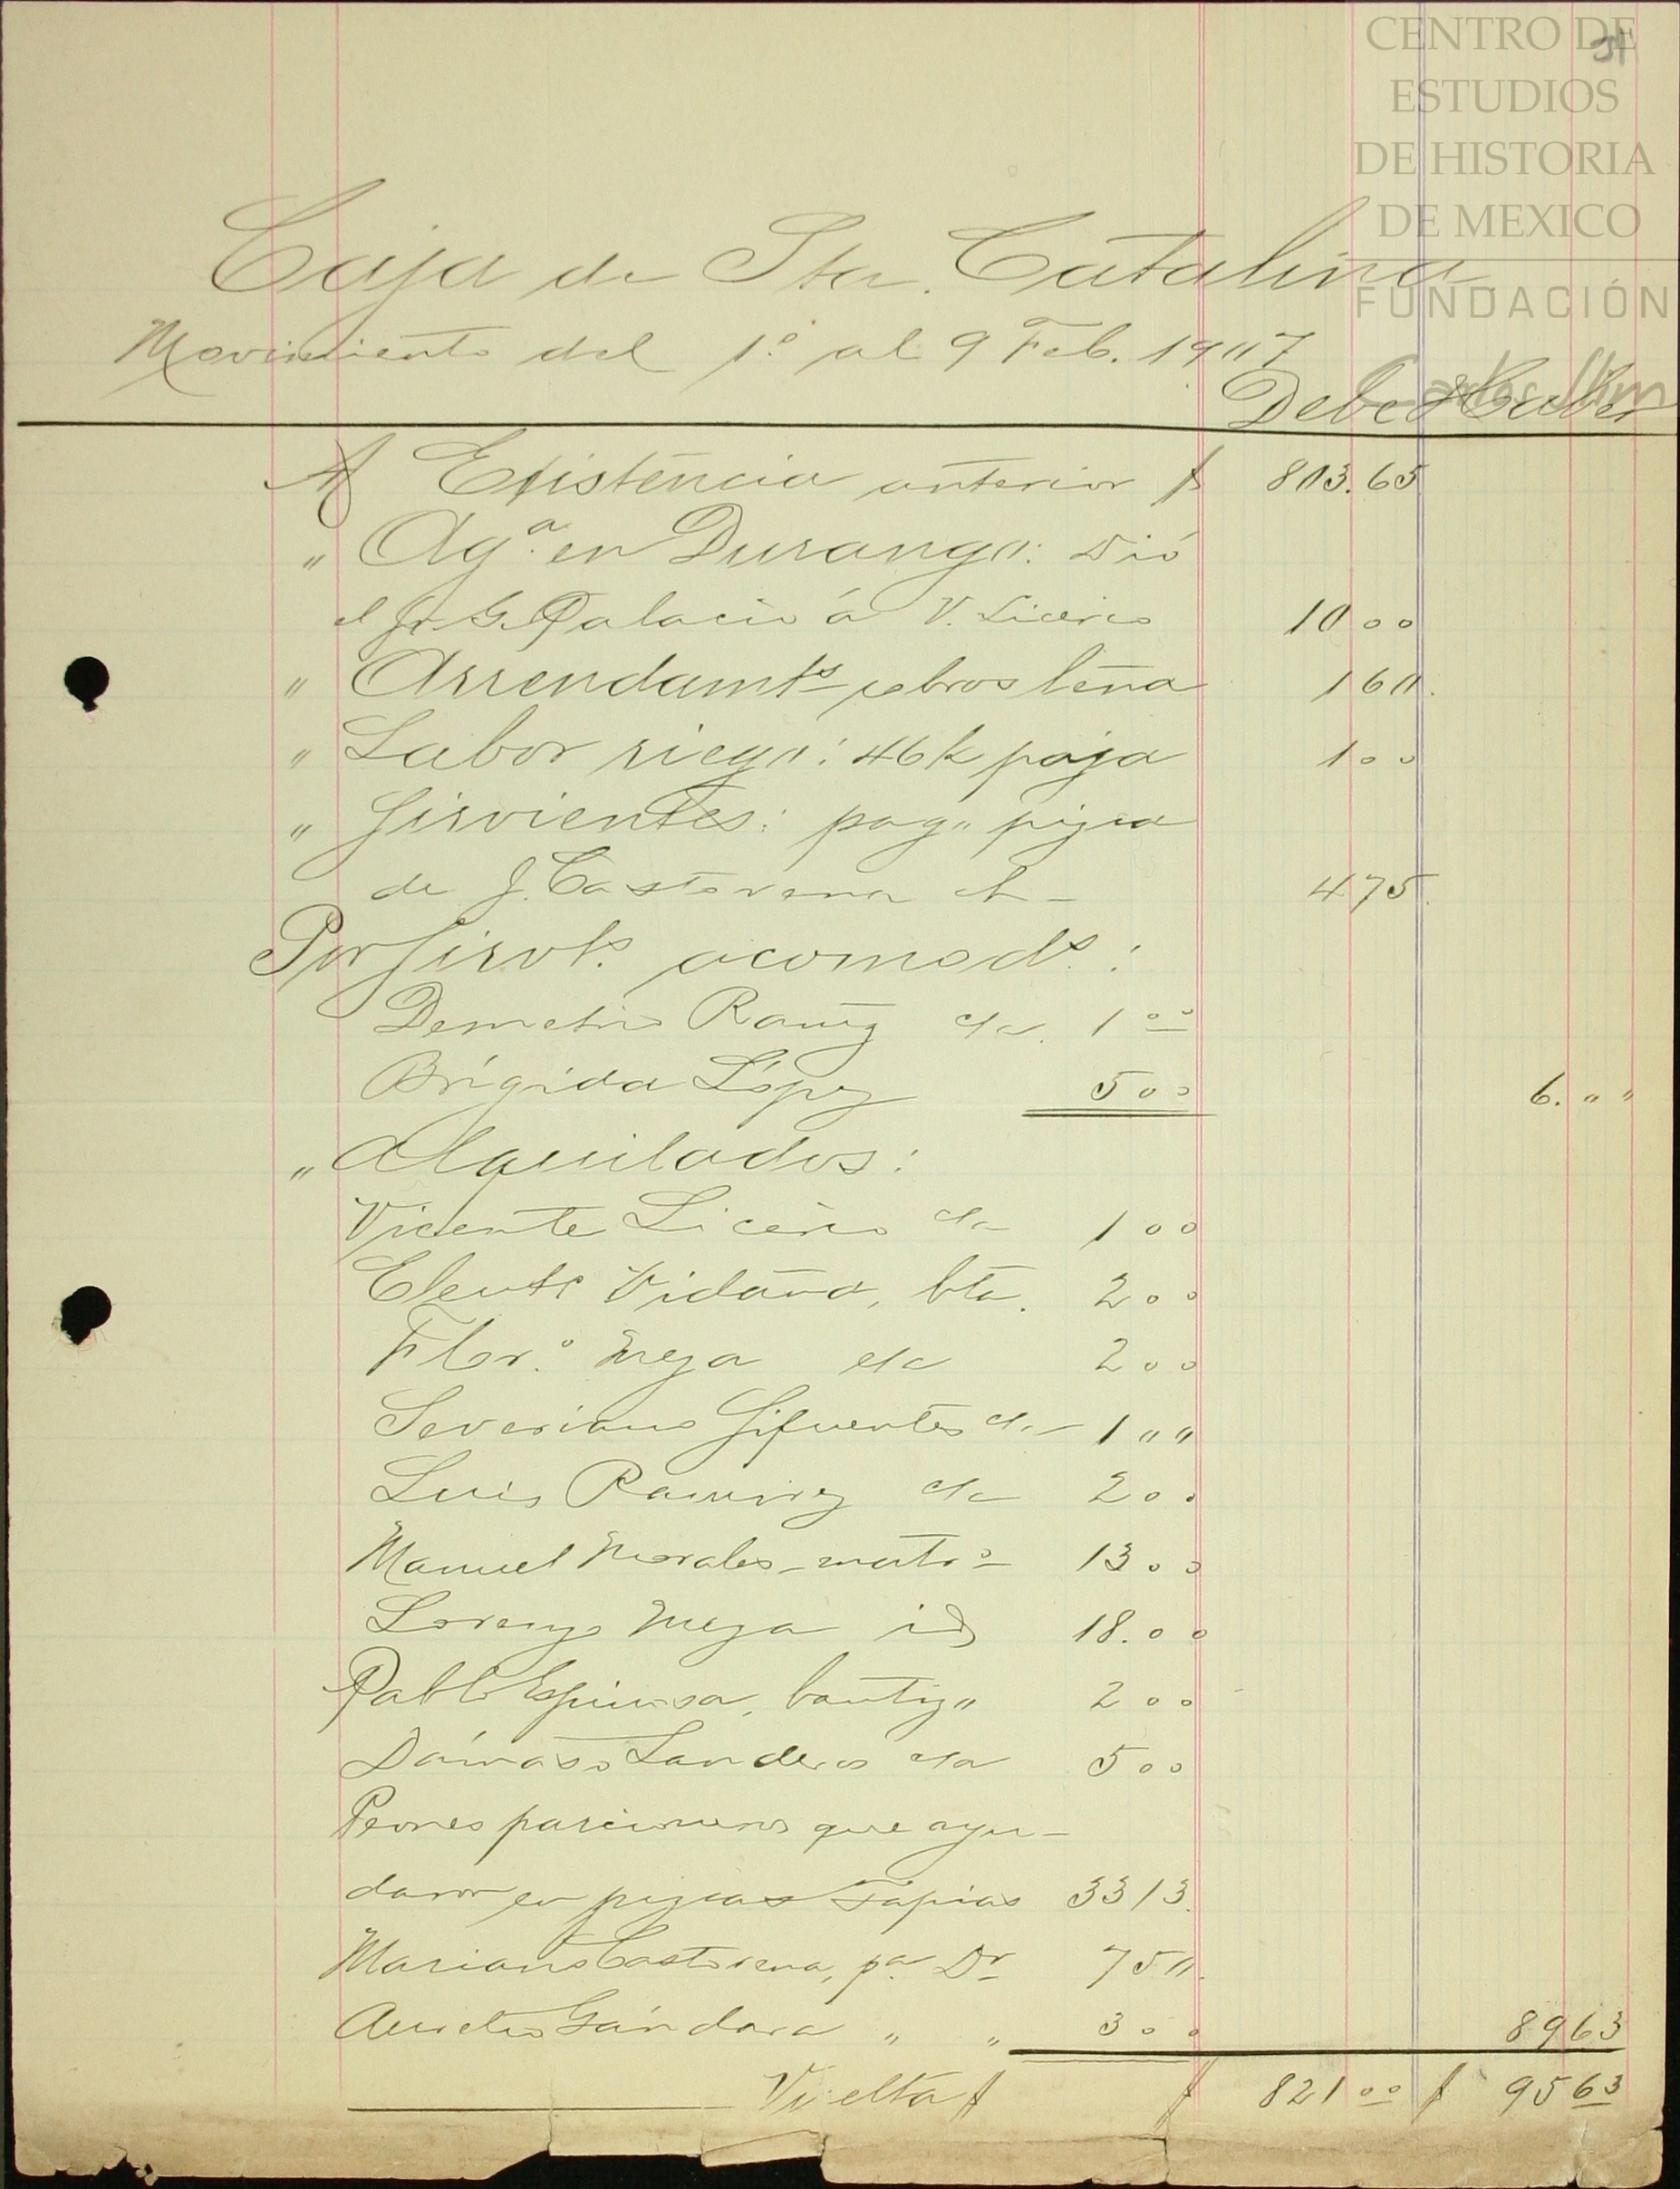 CENTRO DE
ESTUDIOS
DE HISTORIA
DE MEXICO
FUNDACIÓN
Carlos Slim
Caja de Sta. Catalina
Movimiento del 1º al 9 Feb. 1907
Debe Haber
A Existencia anterior $ 803.65
" Agª. en Durango: Dió
el Sr. G. Palacio á V. Licerio 10 00
" Arrendamtos cobros leña 1 60.
" Labor riego: 46k paja 1 00
" Sirvientes: pago pizca
de J. Castorena 4 75.
Por Sirvts. acomods.:
Demetrio Ramz cta. 1 00
Brígida López 5 00 6. " "
" Alquilados:
Vicente Licerio cta 1 00
Eleut° Vidaña, cta. 2 00
Flor.° Meza cta 2 00
Severiano Sifuentes cta 1 " "
Luis Ramirez cta 2 00
Manuel Morales - matrº 13 00
Lorenzo Meza id 18.00
Pablo Espinosa, bautizo 2 00
Dámaso Landeros cta 5 00
Peones parcioneros que ayu-
daron en pizcas Tapias 33 13.
Mariano Castorena, pª Dr 7 50.
Aurelio Gándara " " 3 00 89 63
Vuelta $ $ 821 00 $ 95 63